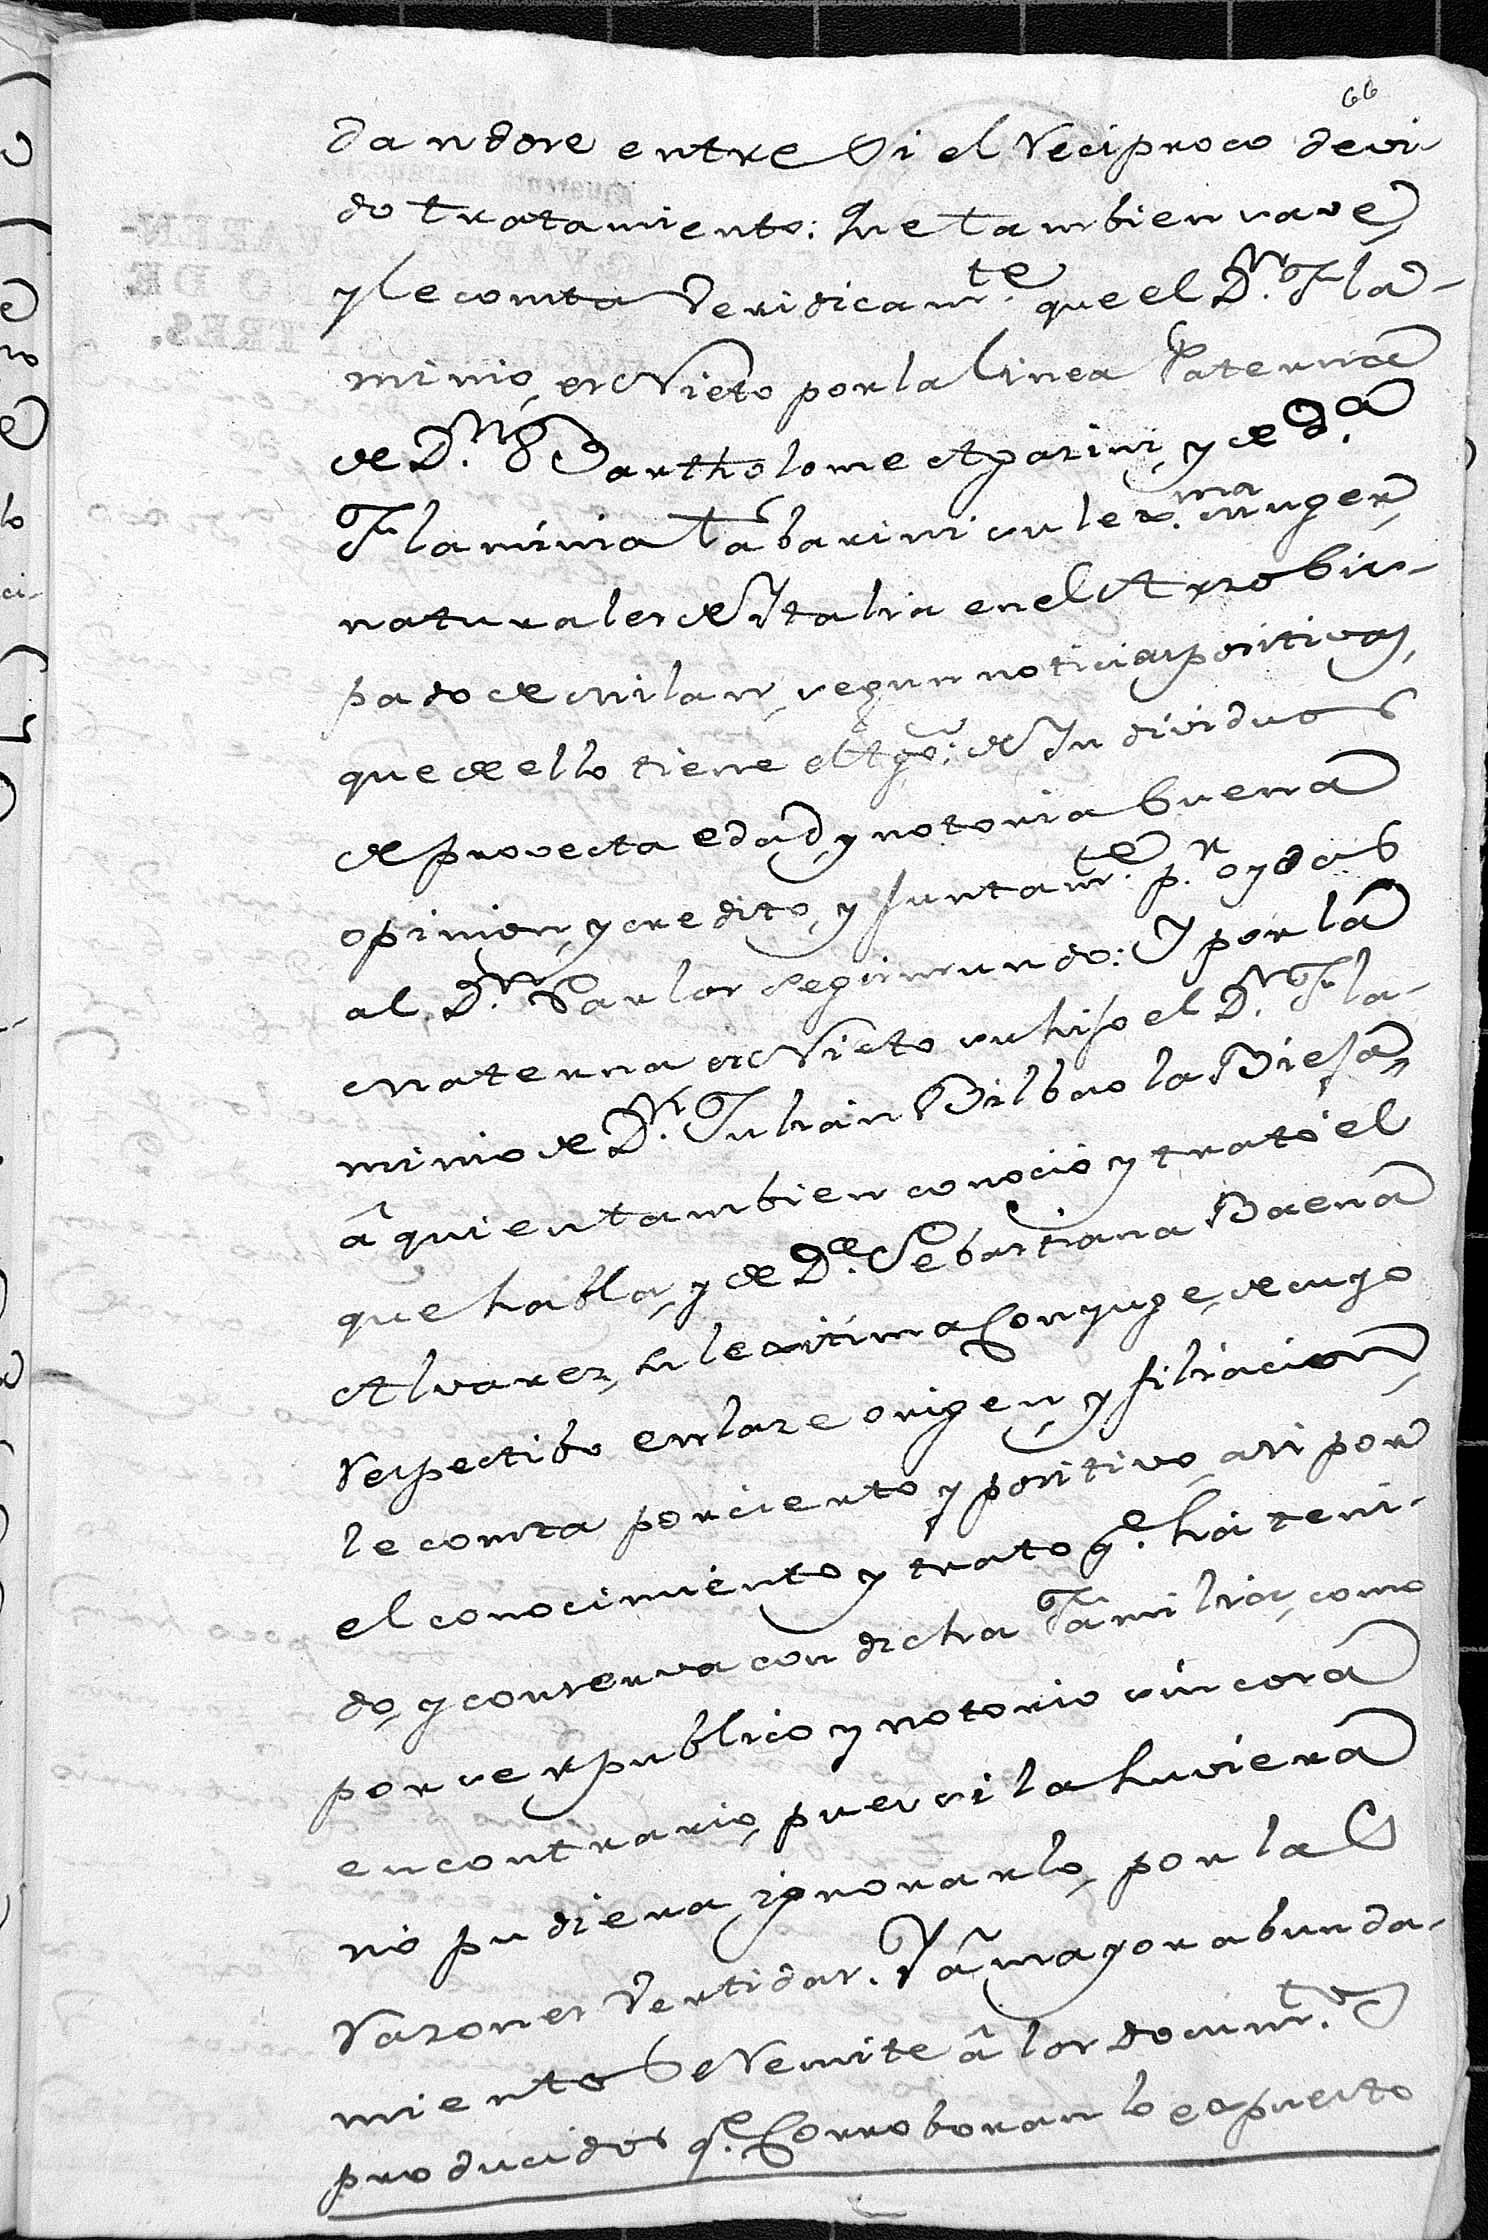 66
dandose entre si el reciproco devi-
do tratamiento: Que tambien save
y le consta veridicam.te que el D.n Fla-
minio, es Nieto por la linea Paterna
de D.n Bartholome Aparini, y de D.a
Flaminia Tabarini su lex.ma muger
naturales de Ytalia en el Arzobis-
pado de Milan, segun noticias positivas,
que de ello tiene el tgo: de Yndividuos
de provecta edad, y notoria buena
opinion, y credito, y juntam.te p.r oydas
al D.n Carlos Segismundo: Y por la
Materna es Nieto su hijo el D.n Fla-
minio de D.n Julian Bilbao la Bieja,
â quien tambien conocio y trató el
que habla, y de D.a Sebastiana Baena
Alvarez, su lexitima Conyuge, de cuyo
respectibo enlaze origen, y filiacion,
le consta por cierto y positivo, asi por
el conocimiento y trato q.e há teni-
do, y conserva con dicha Familia, como
por ser publico y notorio sin cosa
en contrario, pues si la huviera
no pudiera ignorarlo, por las
razones vertidas. Y â mayor abunda-
miento se remite â los docum.tos
producidos q.e Corroboran lo expuesto